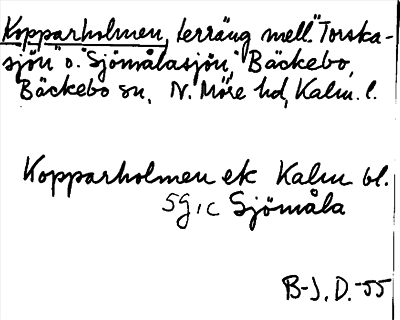 Kopparholmen, terräng mell. "Torska-
sjön" o. "Sjömålasjön", Bäckebo,
Bäckebo sn, N. Möre hd, Kalm. l.
Kopparholmen ek Kalm bl.
5g, c Sjömåla
B-J. D. -55